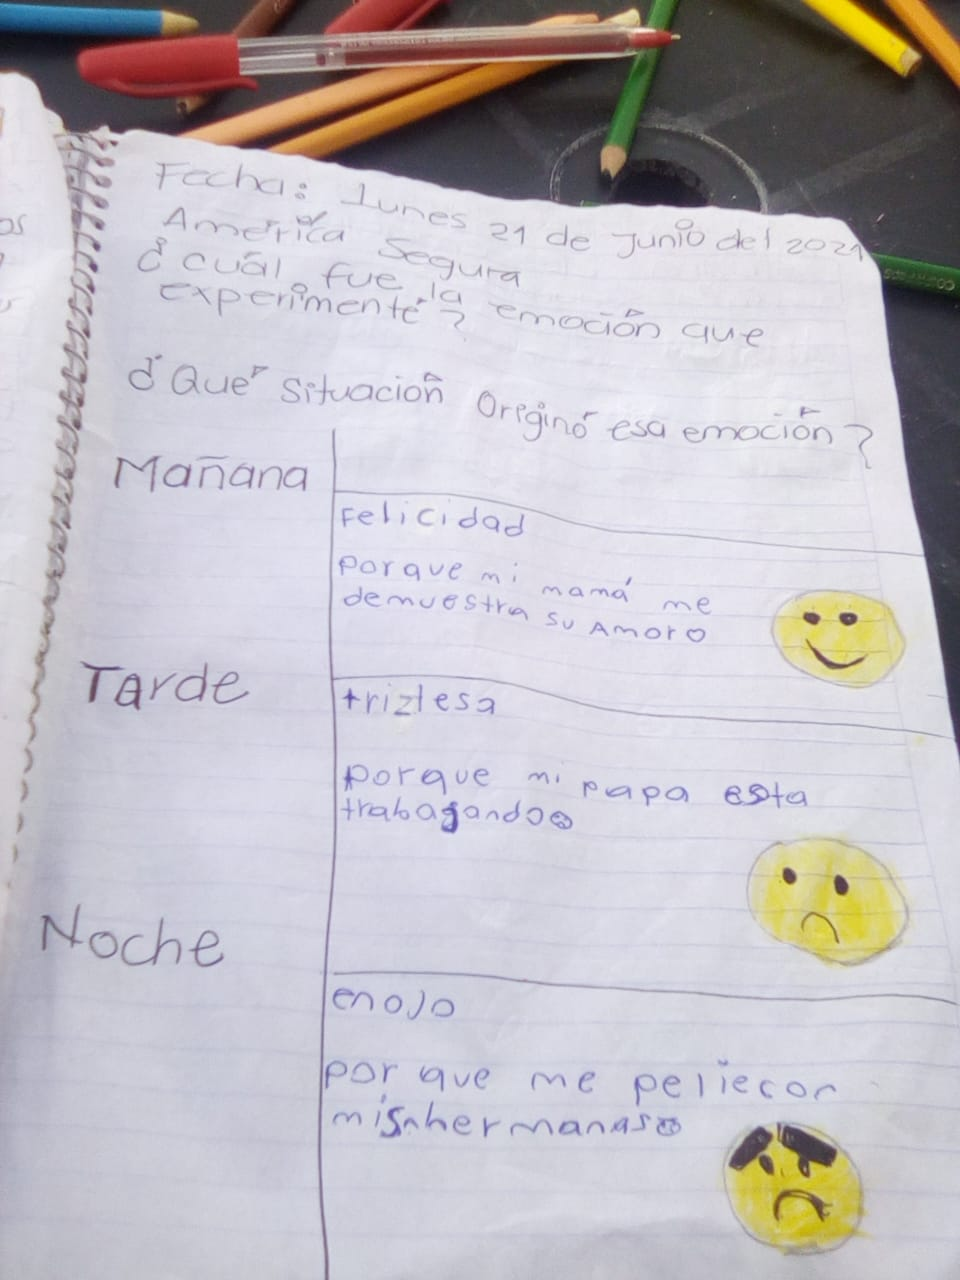 Fecha: lunes 21 de Junio del 2021
América Segura
¿cuál fue la emoción que
experimenté?
¿Qué situación Originó esa emoción?
Mañana
Felicidad
porque mi mamá me
demuestra su Amor
Tarde
triztesa
porque mi papa esta
trabagando
Noche
enojo
por que me pelie con
mis hermanas